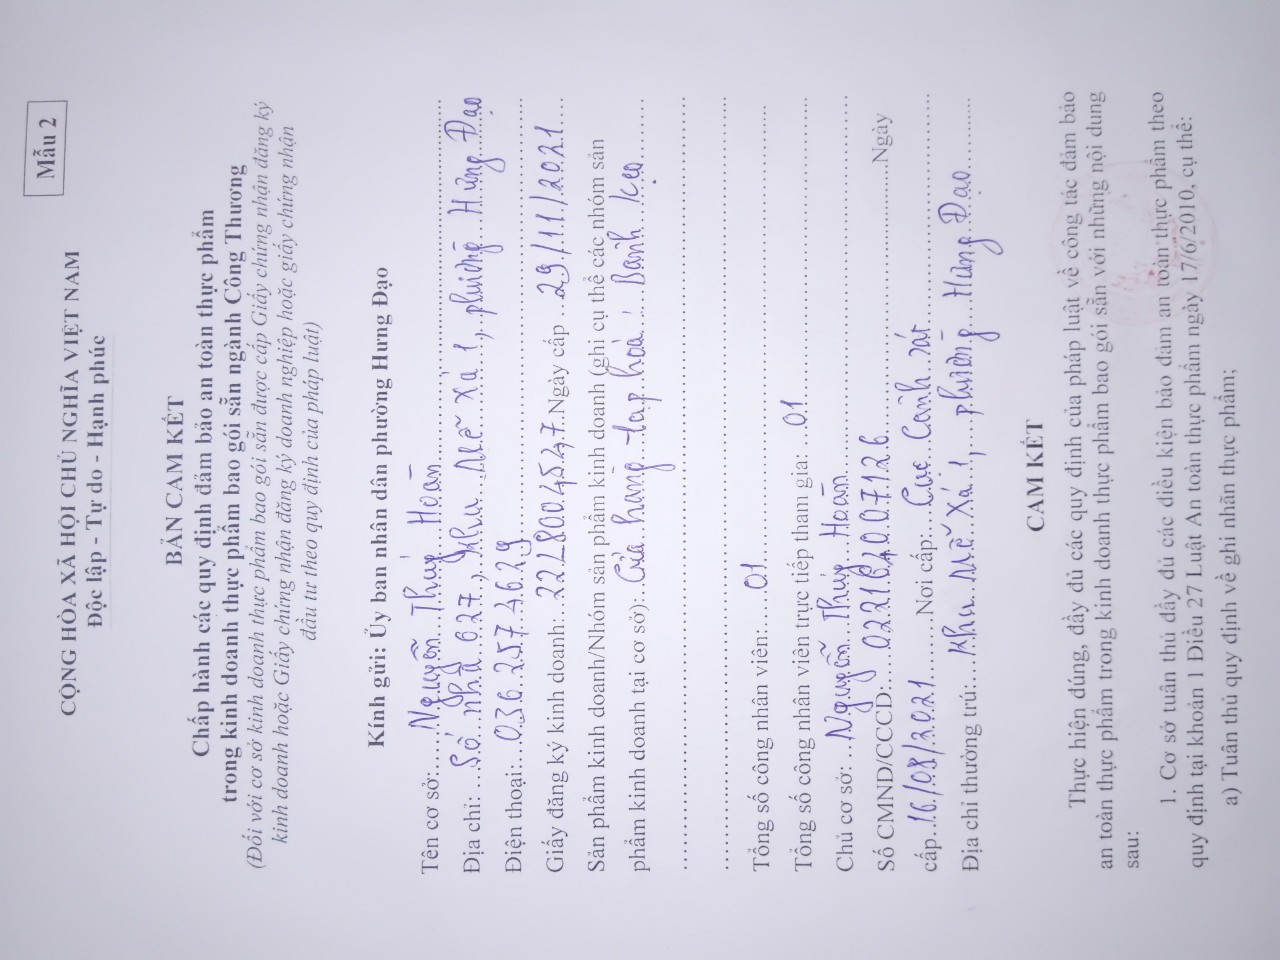 Mẫu 2
CỘNG HÒA XÃ HỘI CHỦ NGHĨA VIỆT NAM
Độc lập - Tự do - Hạnh phúc
BẢN CAM KẾT
Chấp hành các quy định đảm bảo an toàn thực phẩm
trong kinh doanh thực phẩm bao gói sẵn ngành Công Thương
(Đối với cơ sở kinh doanh thực phẩm bao gói sẵn được cấp Giấy chứng nhận đăng ký
kinh doanh hoặc Giấy chứng nhận đăng ký doanh nghiệp hoặc giấy chứng nhận
đầu tư theo quy định của pháp luật)
Kính gửi: Ủy ban nhân dân phường Hưng Đạo
Tên cơ sở: Nguyễn Thúy Hoàn
Địa chỉ: Số nhà 627, Khu Mễ Xá 1, phường Hưng Đạo
Điện thoại: 036.257.4629
Giấy đăng ký kinh doanh: 22L8004547 Ngày cấp 29/11/2021
Sản phẩm kinh doanh/Nhóm sản phẩm kinh doanh (ghi cụ thể các nhóm sản
phẩm kinh doanh tại cơ sở): Cửa hàng tạp hoá: Bánh kẹo
Tổng số công nhân viên: 01
Tổng số công nhân viên trực tiếp tham gia: 01
Chủ cơ sở: Nguyễn Thúy Hoàn
Số CMND/CCCD: Ngày
cấp 16/08/2021 Nơi cấp: Cục Cảnh sát
Địa chỉ thường trú: Khu Mễ Xá 1, phường Hưng Đạo
CAM KẾT
Thực hiện đúng, đầy đủ các quy định của pháp luật về công tác đảm bảo
an toàn thực phẩm trong kinh doanh thực phẩm bao gói sẵn với những nội dung
sau:
1. Cơ sở tuân thủ đầy đủ các điều kiện bảo đảm an toàn thực phẩm theo
quy định tại khoản 1 Điều 27 Luật An toàn thực phẩm ngày 17/6/2010, cụ thể:
a) Tuân thủ quy định về ghi nhãn thực phẩm;